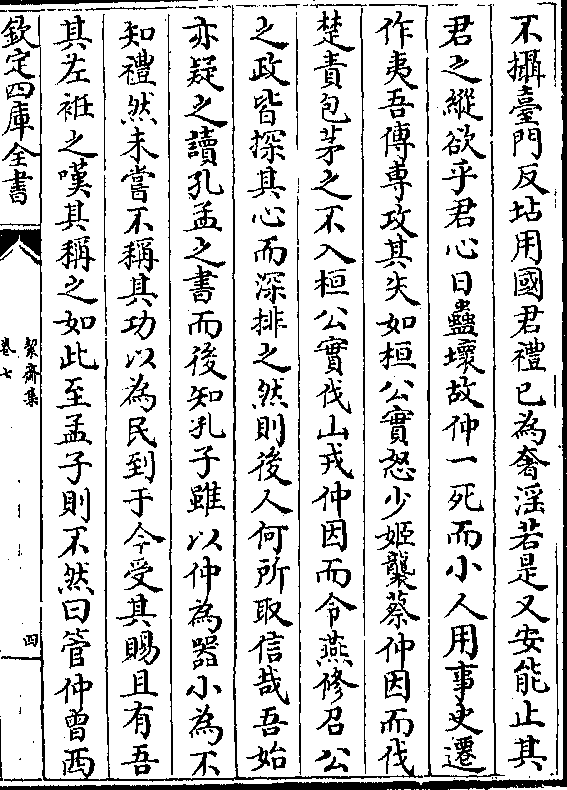 不攝臺門反坫用國君禮已為奢淫若是又安能止其
君之縱欲乎君心日蠱壞故仲一死而小人用事史遷
作夷吾傳專攻其失如桓公實怒少姬襲蔡仲因而伐
楚責包茅之不入桓公實伐山戎仲因而令燕修召公
之政皆探其心而深排之然則後人何所取信哉吾始
亦疑之讀孔孟之書而後知孔子雖以仲為器小為不
知禮然未嘗不稱其功以為民到于今受其賜且有吾
其左袵之嘆其稱之如此至孟子則不然曰管仲曾西
欽定四庫全書
絜齋集
卷七
四